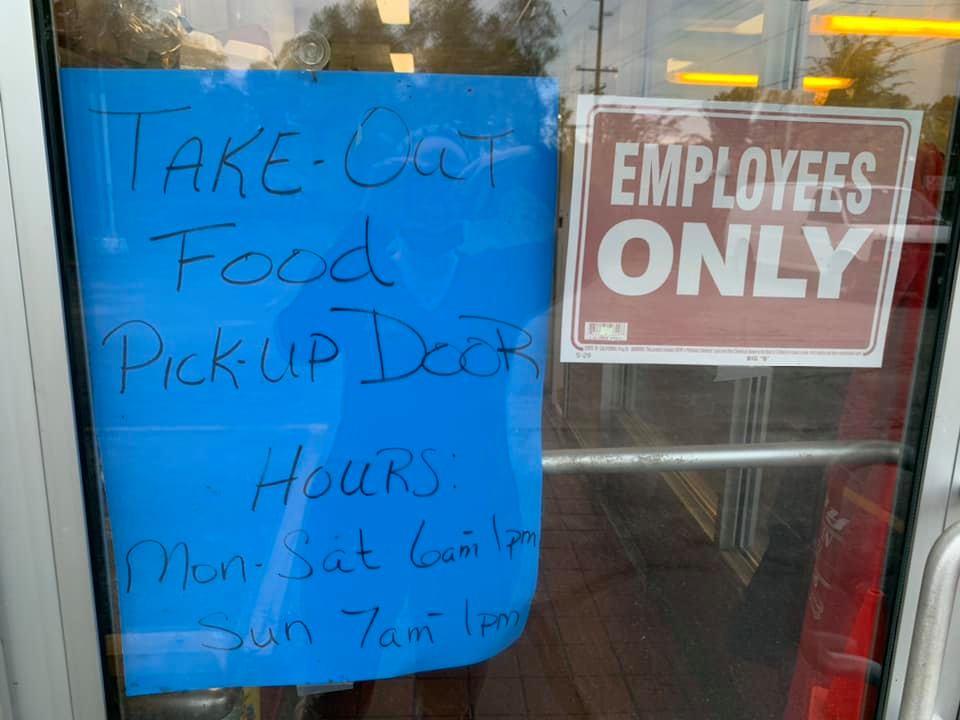 TAKE-OUT
Food
PICK-UP DOOR
HOURS:
Mon-Sat 6am 1pm
Sun 7am 1pm
EMPLOYEES
ONLY
S-29
BIG "9"